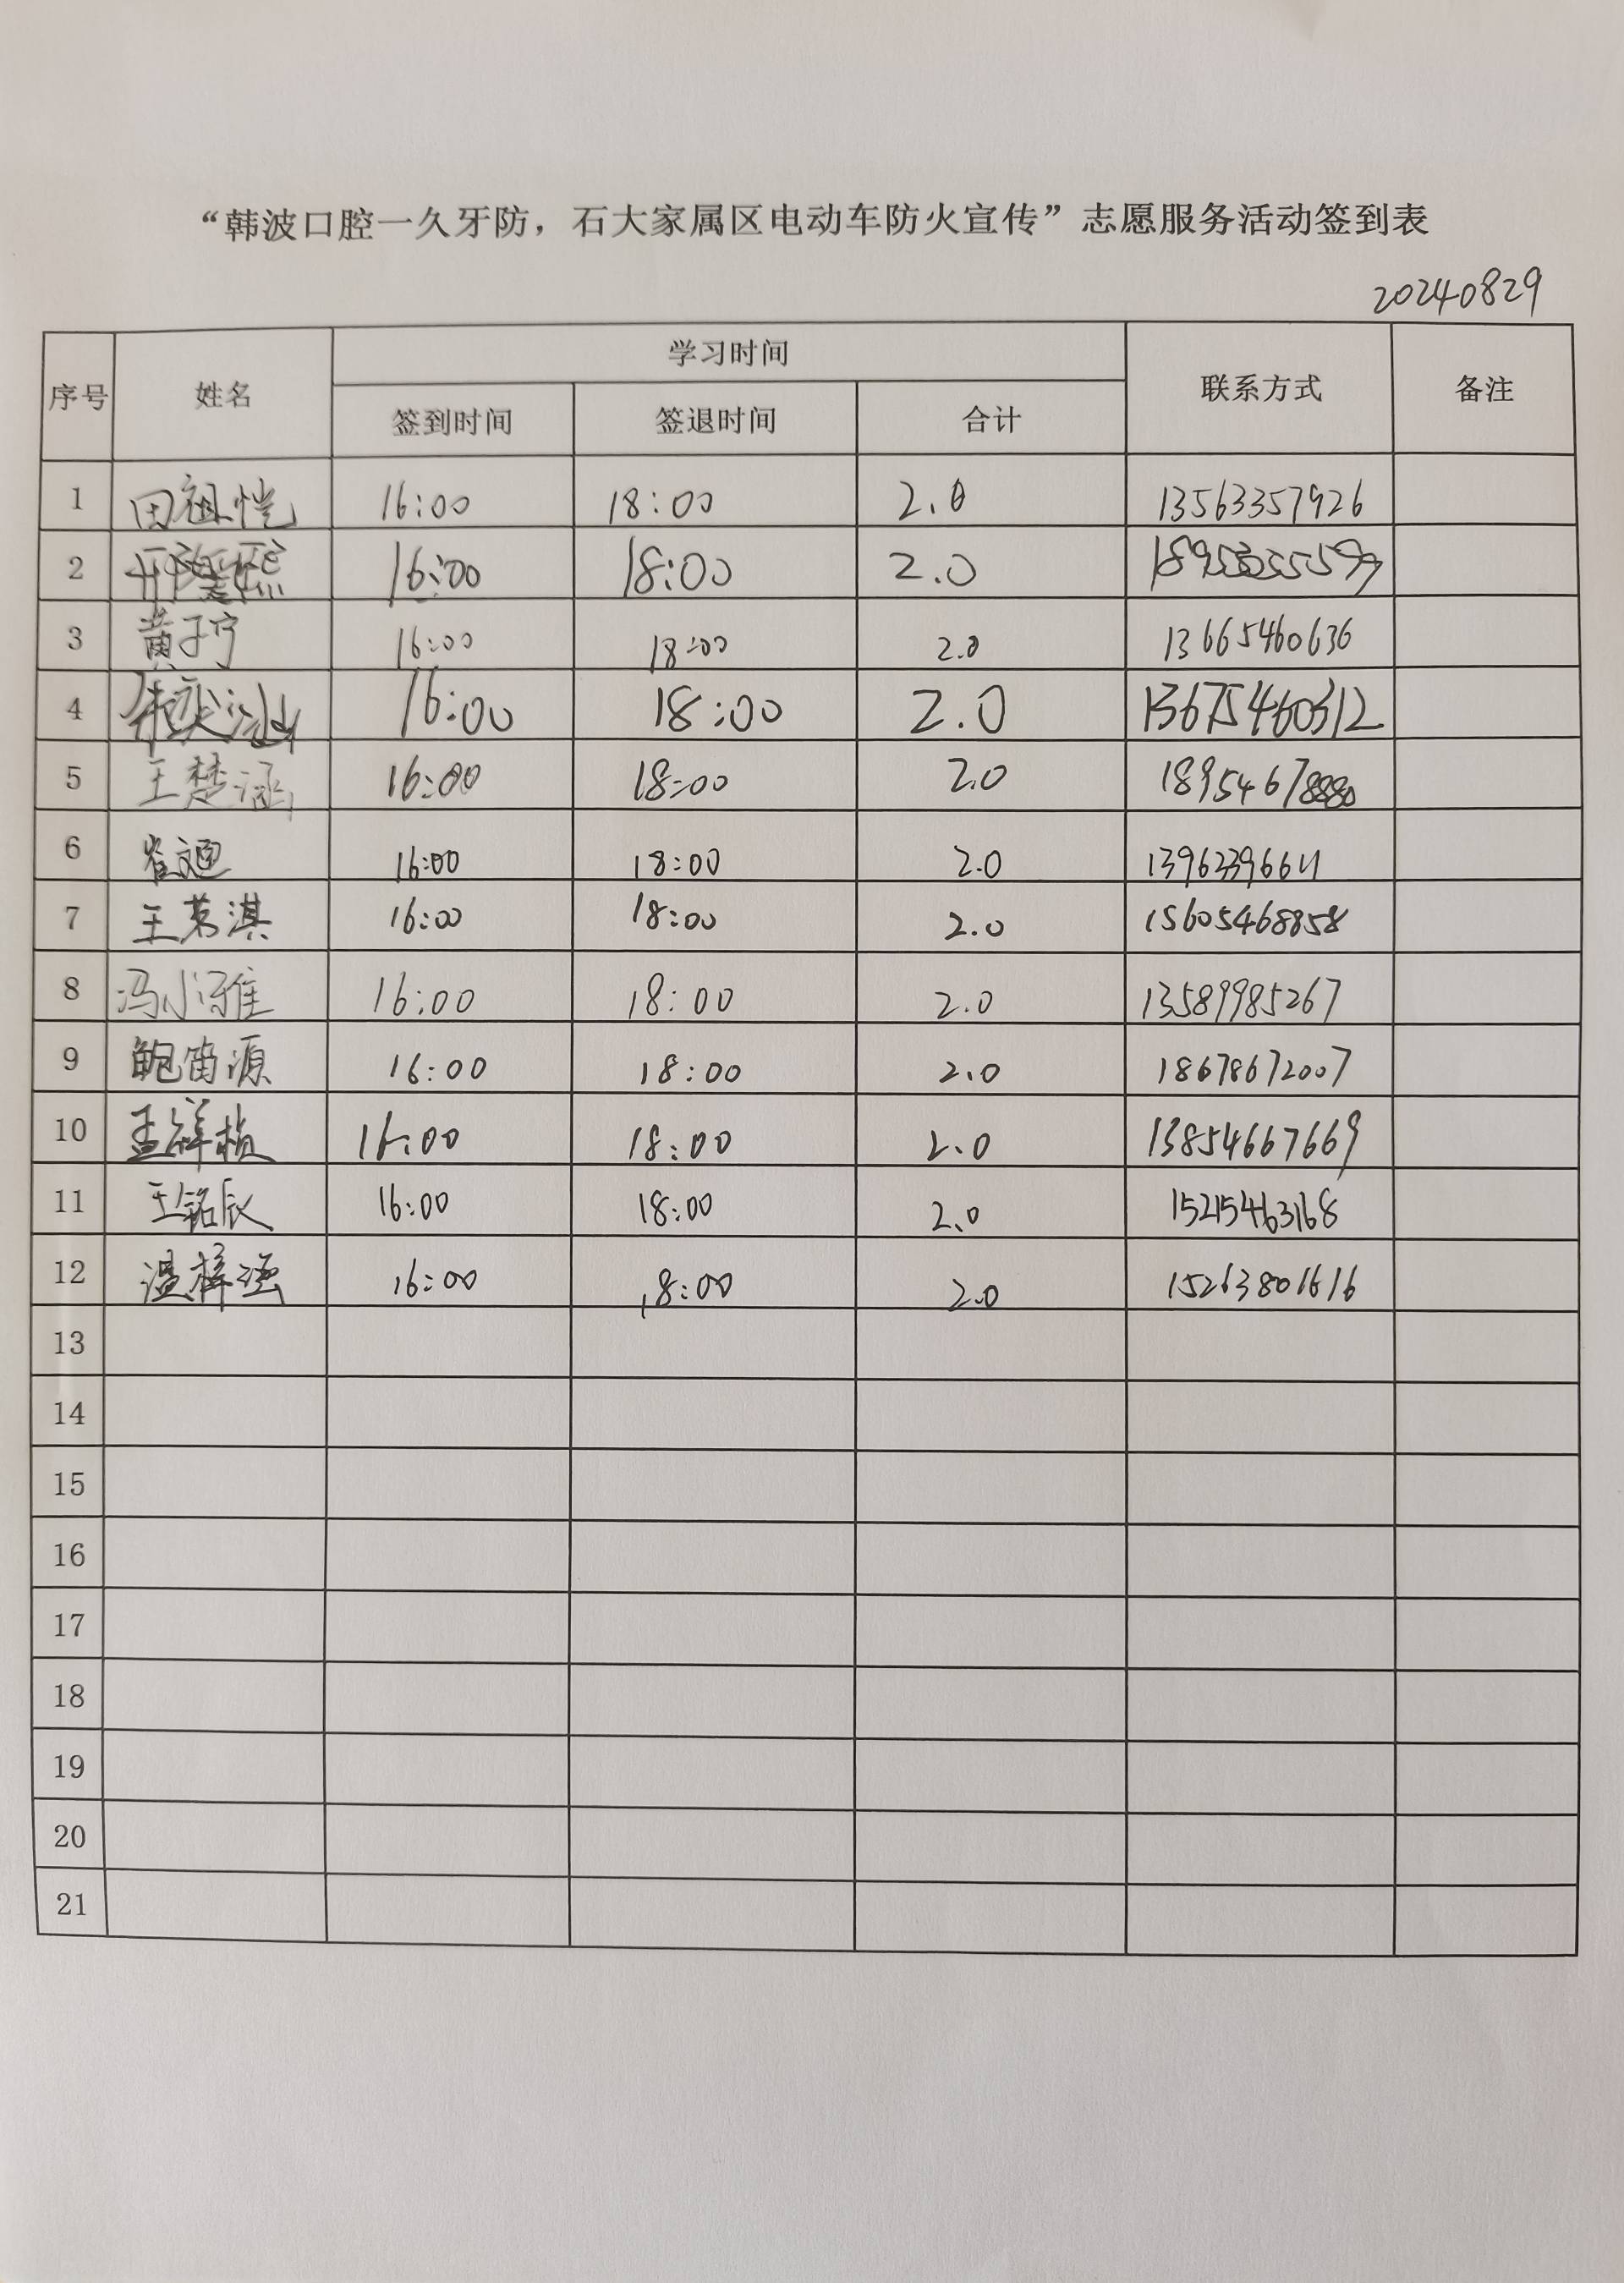 “韩波口腔一久牙防，石大家属区电动车防火宣传”志愿服务活动签到表
20240829
序号 姓名 学习时间 联系方式 备注
签到时间 签退时间 合计
1 田祖恺 16:00 18:00 2.0 13563357926
2 16:00 18:00 2.0
3 黄子宁 16:00 18:00 2.0 13665460636
4 16:00 18:00 2.0 13675460312
5 王楚涵 16:00 18:00 2.0
6 16:00 18:00 2.0
7 王若淇 16:00 18:00 2.0 15605468858
8 16:00 18:00 2.0 13589985267
9 鲍笛源 16:00 18:00 2.0 18678672007
10 孟祥桢 16:00 18:00 2.0 13854667669
11 王铭辰 16:00 18:00 2.0 15215463168
12 温梓强 16:00 18:00 2.0 15263801616
13
14
15
16
17
18
19
20
21